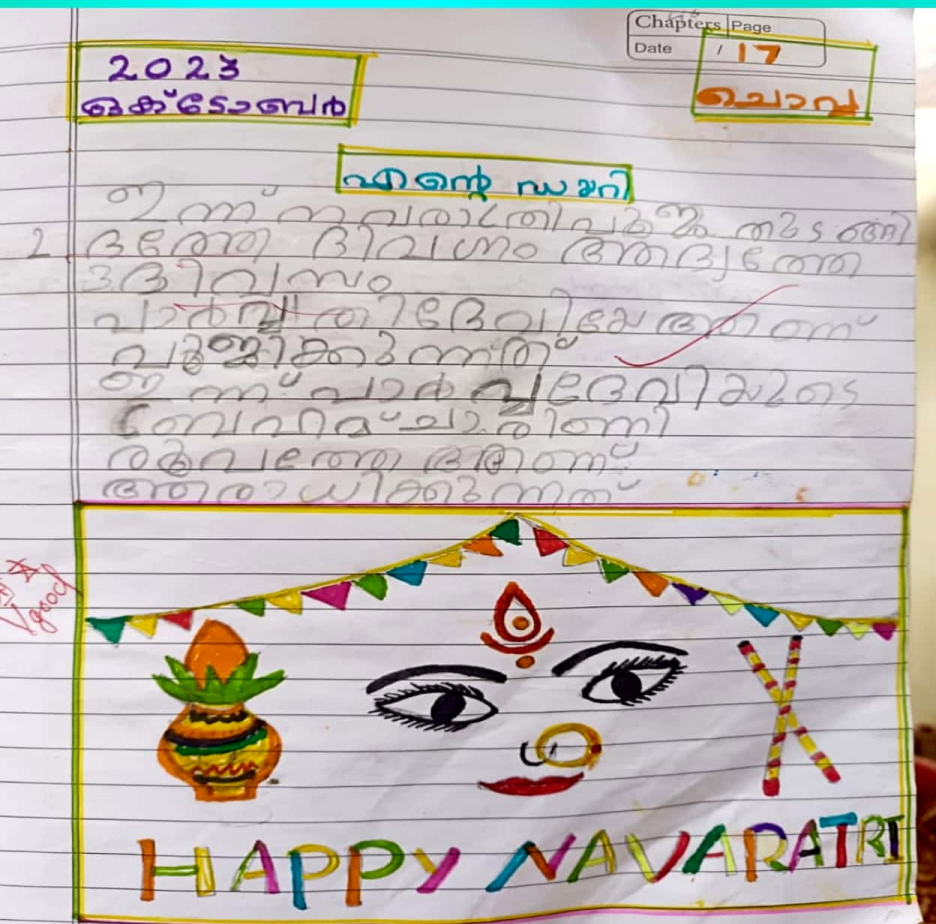 Chapters Page
Date / 17
2023
ഒക്ടോബർ
ചൊവ്വ
എന്റെ ഡയറി
ഇന്ന് നവരാത്രിപൂജ തുടങ്ങി
2 ദത്തെ ദിവസം ആദ്യത്തെ
3ദിവസം
പാർവ്വതിദേവിയേആണ്
പൂജിക്കുന്നത്
ഇന്ന് പാർവ്വദേവിയുടെ
രൂപത്തെ ആണ്
ആരാധിക്കുന്നത്
V good
HAPPY NAVARATRI